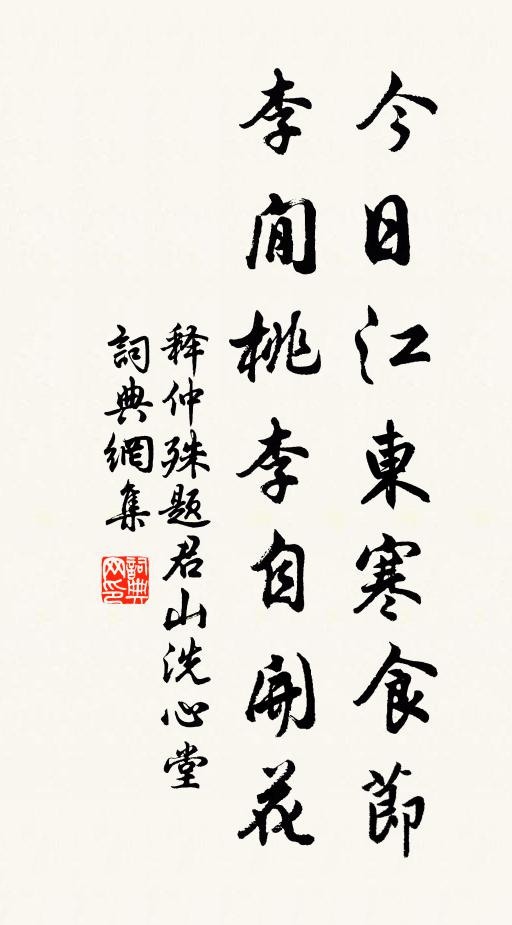 今日江東寒食節
李閒桃李自開花
释仲殊题君山洗心堂
詞典網集
詞典
网印